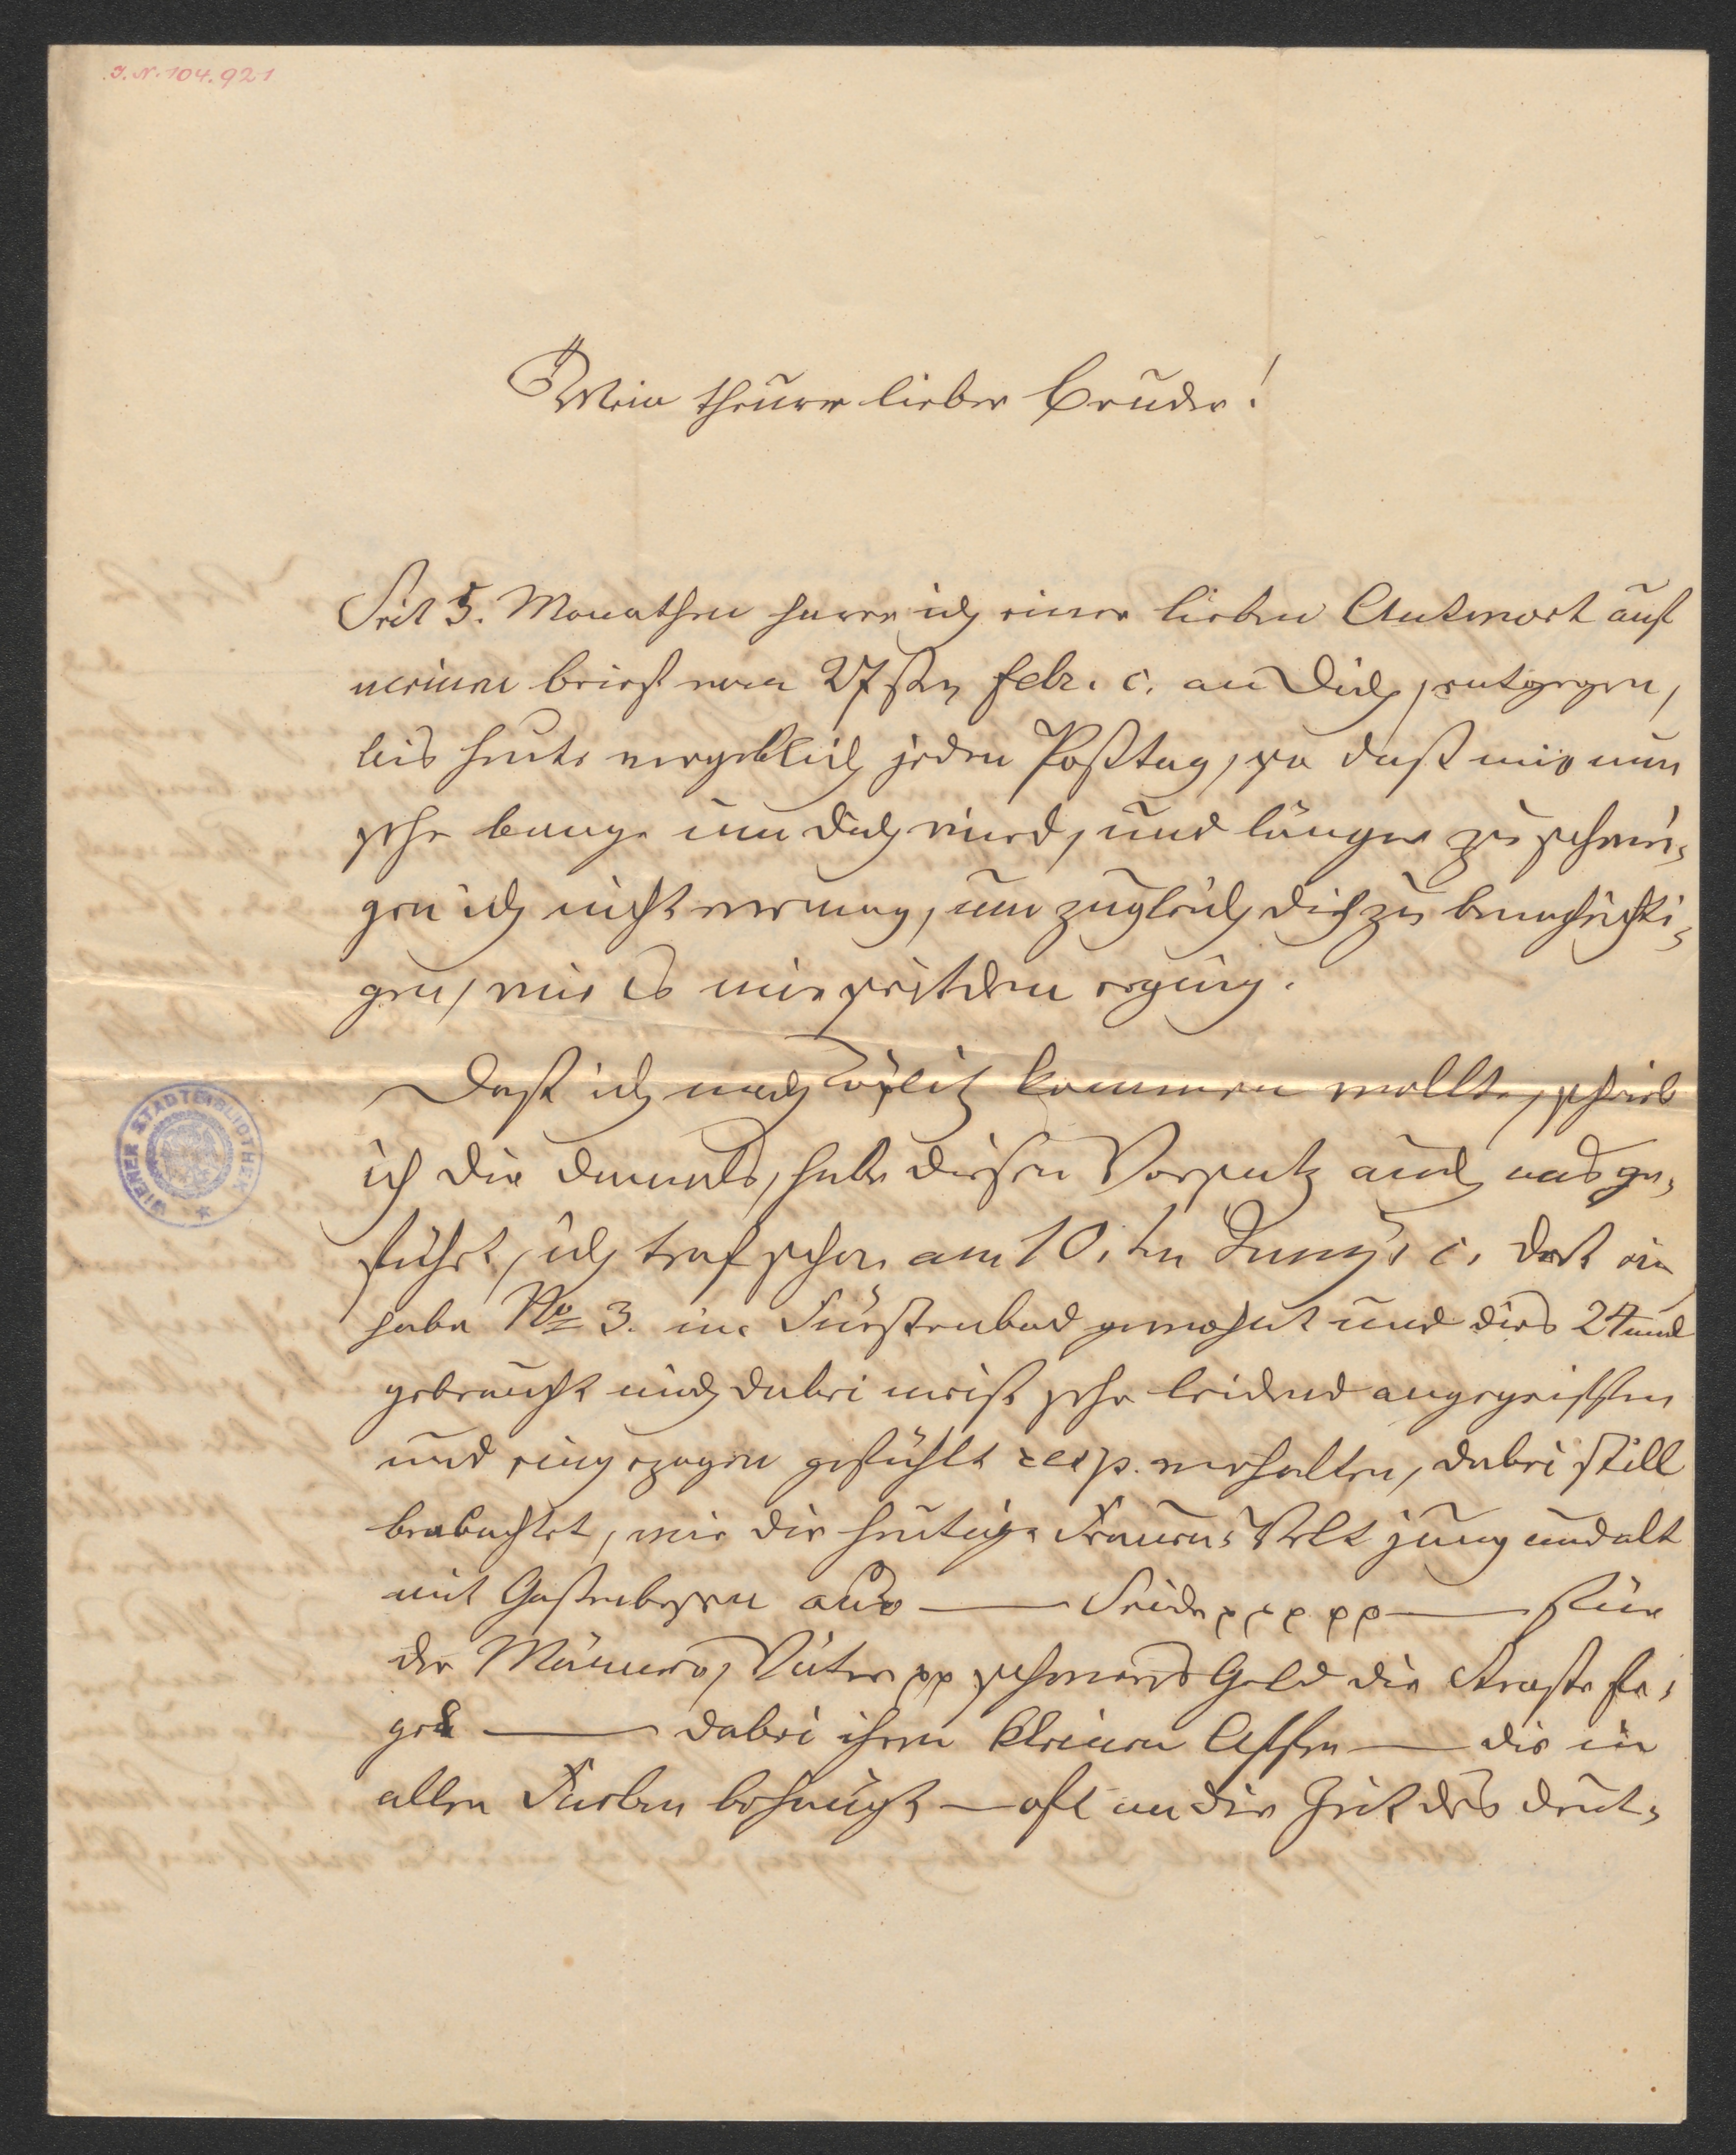 I.N. 104.921
Mein theurer lieber Bruder!
Seit 5. Monathen harre ich einer lieben Antwort auf
meinen brief vom 27sten Febr. c. an Dich, entgegen,
bis heute vergeblich jeden Posttag, so daß mir nun
sehr bange um dich wird, und länger zu schwei=
gen ich nicht vermag, um zugleich dich zu benachrichti=
gen, wie es mir seitdem erging.
Daß ich nach Töplitz kommen wollte, schrieb
ich dir damals, habe diesen Vorsatz auch ausge=
führt, ich traf schon am 10.ten Juny c. dort ein
habe No 3. im Fürstenbad gewohnt und dies 24 mal
gebraucht mich dabei meist sehr leidend angegriffen
und eingezogen gefühlt resp. verhalten, dabei still
beobachtet, wie die heutige Frauen=Welt jung und alt
mit Gassenbesen aus — Seide — für
der Männer, Väter pp schweres Geld die Straße fe=
gen — dabei ihren kleinen Affen — die in
allen Farben behängt — oft an die Zeit des deut=
WIENER STADTBIBLIOTHEK